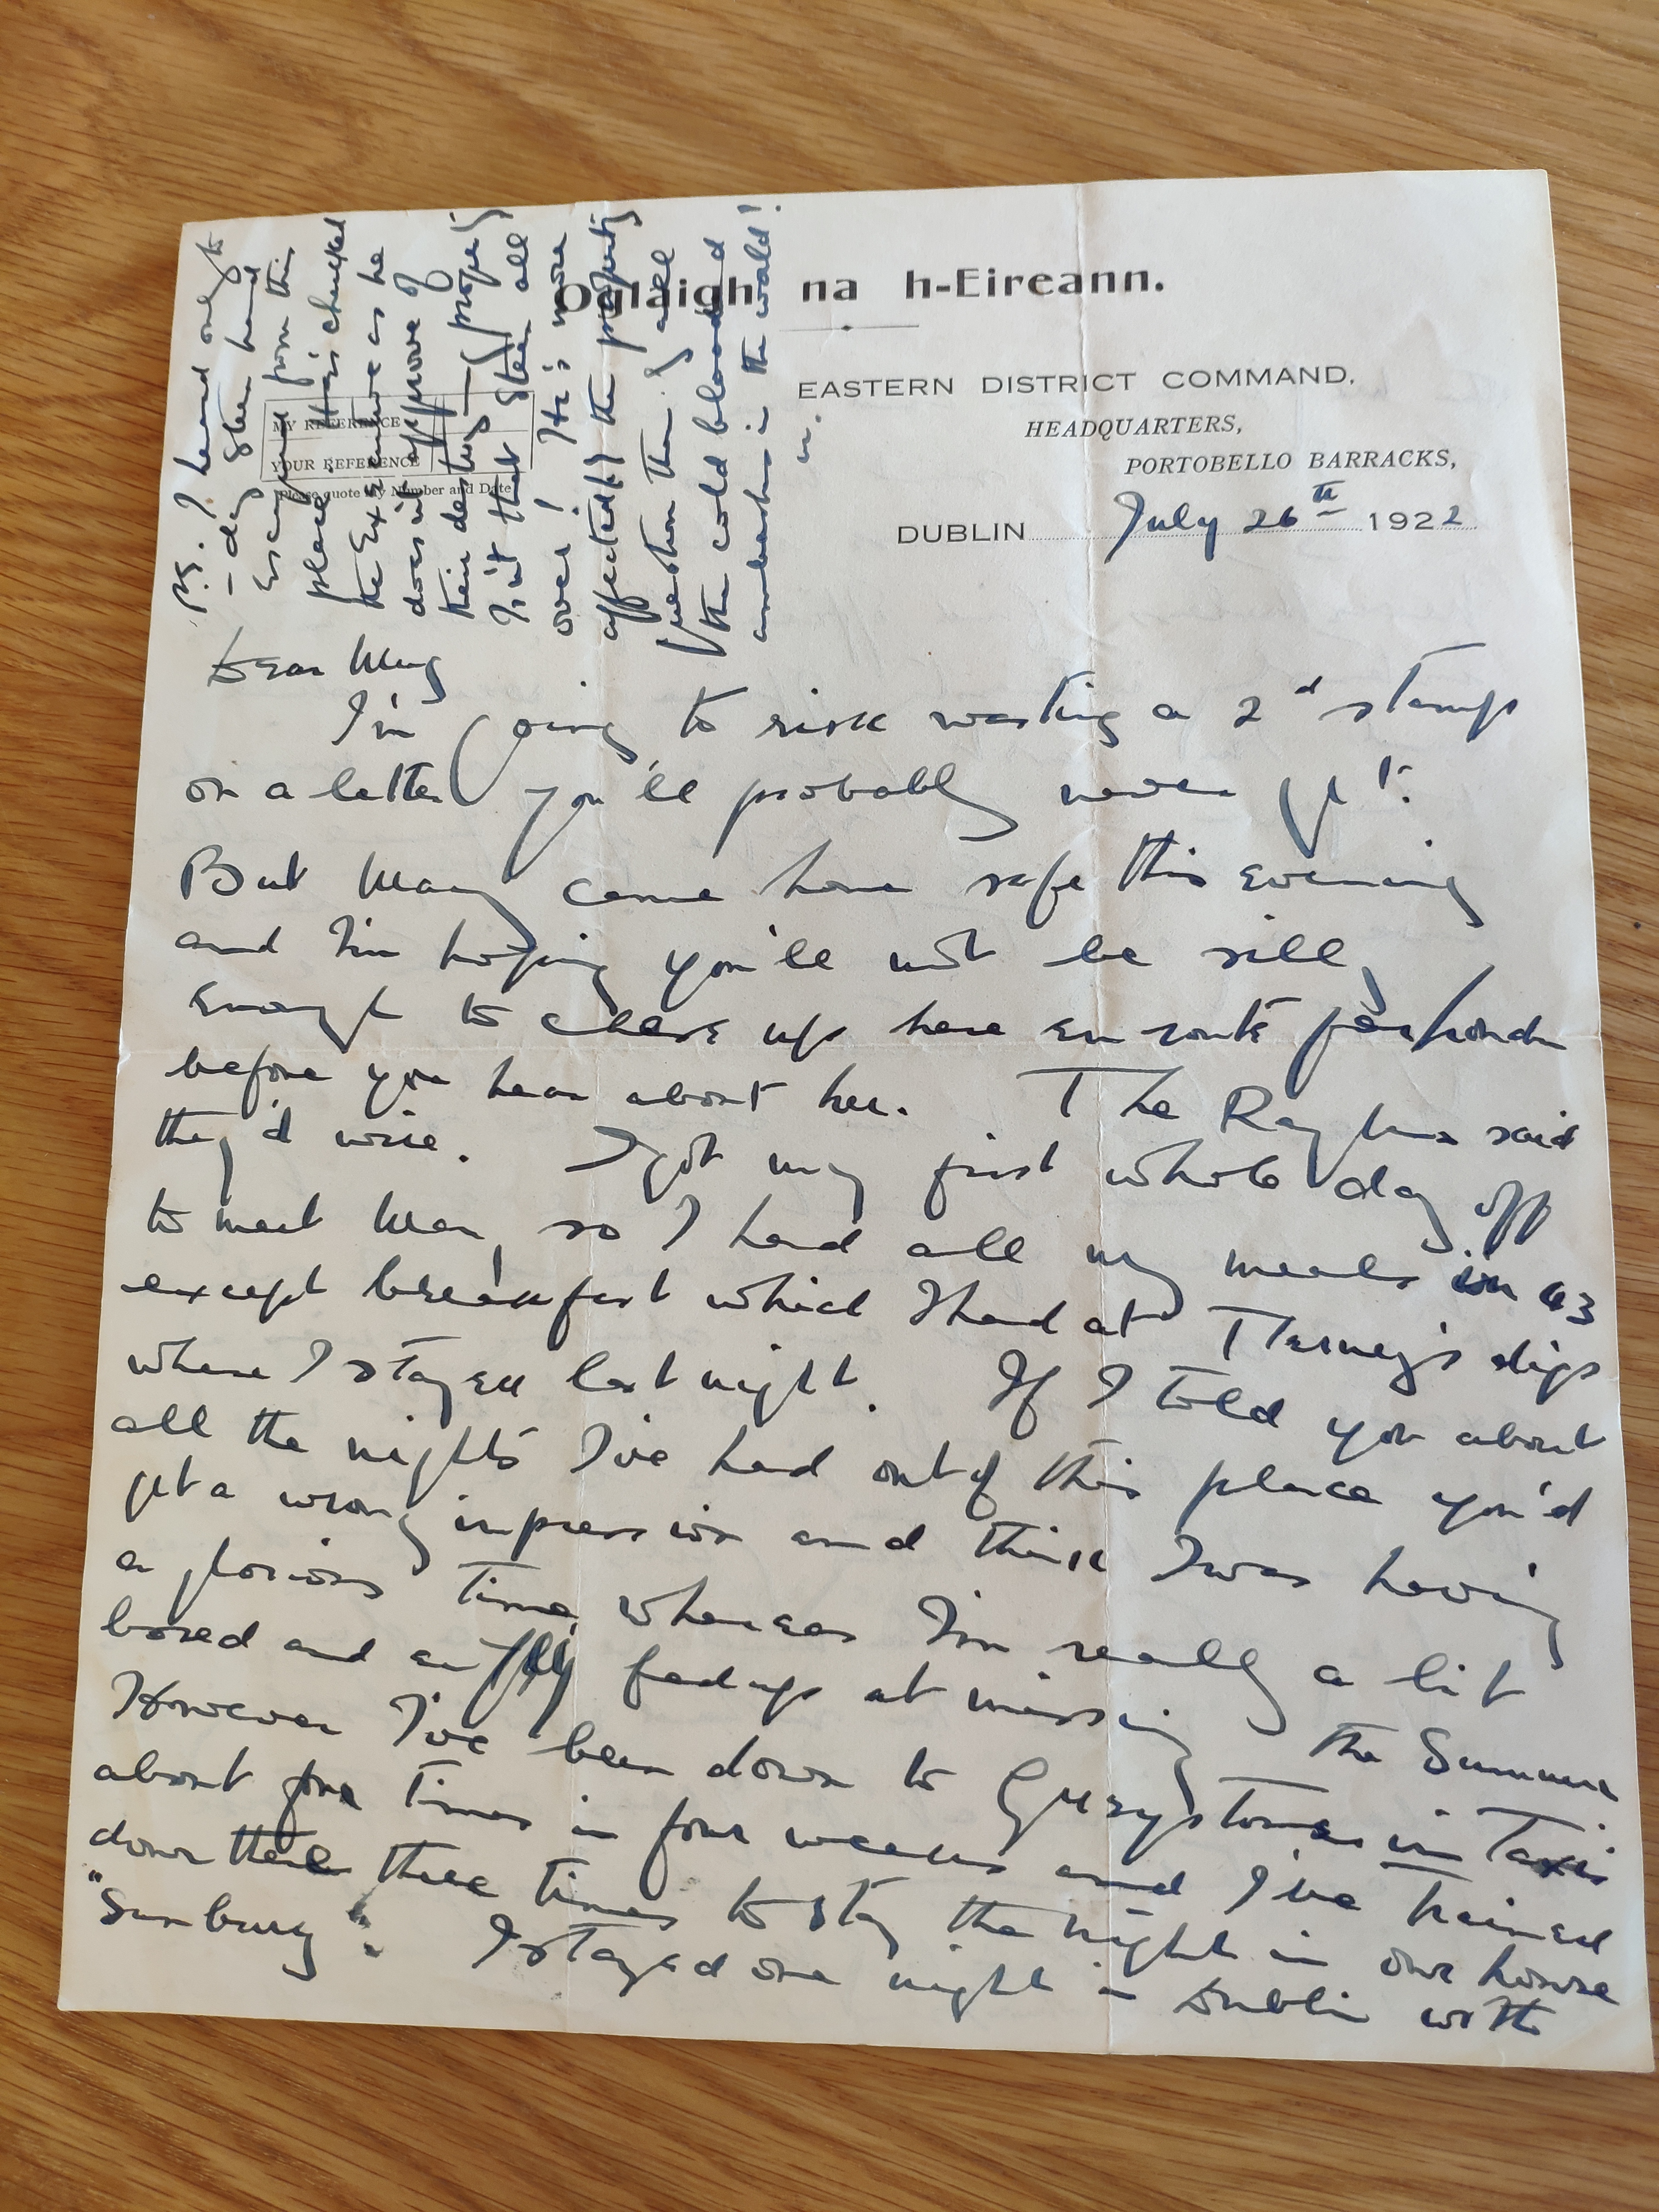 Oglaigh na h-Eireann.
EASTERN DISTRICT COMMAND,
HEADQUARTERS,
PORTOBELLO BARRACKS,
MY REFERENCE
YOUR REFERENCE
Please quote My Number and Date
DUBLIN July 26th 1922
P.S. I heard only to
-day Steen hand
Escaped from this
place. He's chucked
the Exxxx as he
does not approve of
their destroying property
Isn't that Steen all
over! He's more
affected by the property
question than by all
the cold blooded
ambushes in the world!
m.
Dear Mug
I'm going to risk wasting a 2d stamp
on a letter you'll probably never get.
But Mary came home safe this evening
and I'm hoping you'll not be silly
enough to chase up here en route for London
before you hear about her. The Raghns said
they'd wire. I got my first whole day off
to meet Mary, so I had all my meals in 63
except breakfast which I had at Tierney's digs
where I stayed last night. If I told you about
all the nights I've had out of this place you'd
get a wrong impression and think I was having
a glorious time, whereas I'm really a bit
bored and awfully fed up at missing the Summer
However I've been down to Greystones in Taxis
about four times in four weeks and I've trained
down there three times to stay the night in our house
"Sunbury". I stayed one night in Dublin with